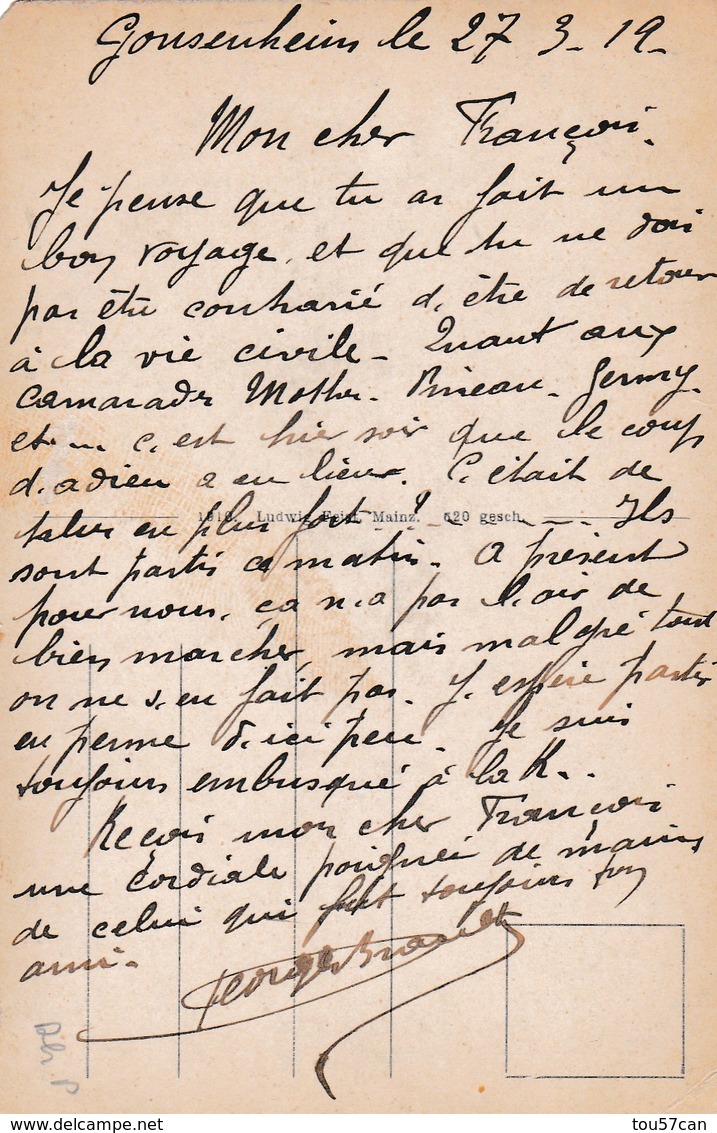 Gonsenheim le 27 3-19-
Mon cher François.
Je pense que tu as fait un
bon voyage. et que tu ne dois
pas être contrarié d'être de retour
à la vie civile - Quant aux
camarades Pineau. Germy.
et... c'est hier soir que le coup
d'adieu a eu lieu. C'était de
en plus fort! - - - - Ils
1918. Ludwig Feist, Mainz. 520 gesch.
sont partis ce matin. A présent
pour nous, ça n'a pas l'air de
bien marcher, mais malgré tout
on ne s'en fait pas. J'espère partir
en perme d'ici peu. Je suis
toujours embusqué à la K..
Reçois mon cher François
une cordiale poignée de mains
de celui qui fut toujours ton
ami.
Georges
tou57can